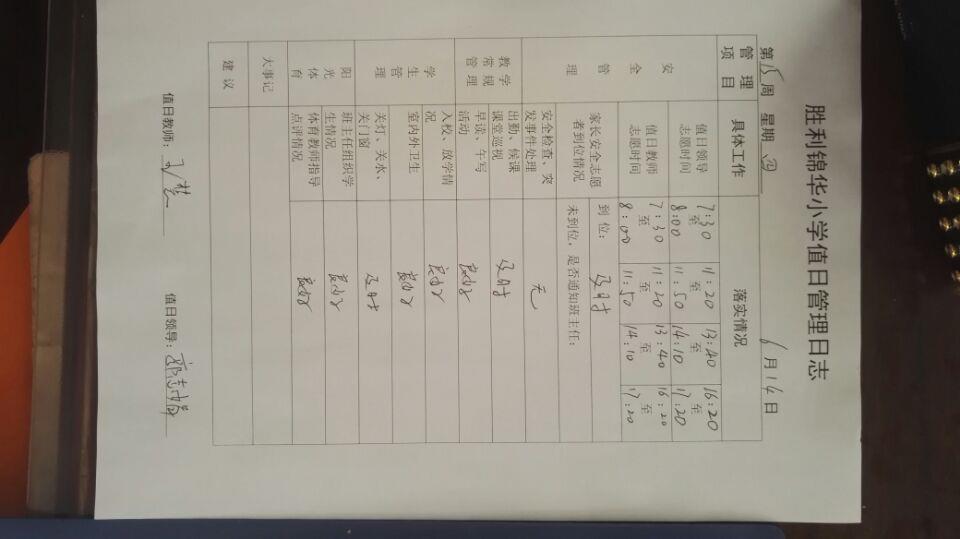 胜利锦华小学值日管理日志
第15周 星期 四 6月14日
管理项目 具体工作 落实情况
安全管理
值日领导志愿时间 7:30至8:00 11:20至11:50 13:40至14:10 16:20至17:20
值日教师志愿时间 7:30至8:00 11:20至11:50 13:40至14:10 16:20至17:20
家长安全志愿者到位情况 到位： 及时
未到位，是否通知班主任：
安全检查、突发事件处理 无
教学常规管理
出勤、候课课堂巡视 及时
早读、午写活动 良好
学生管理
入校、放学情况 良好
室内外卫生 良好
关灯、关水、关门窗 及时
阳光体育
班主任组织学生情况 良好
体育教师指导点评情况 良好
大事记
建议
值日教师： 值日领导：